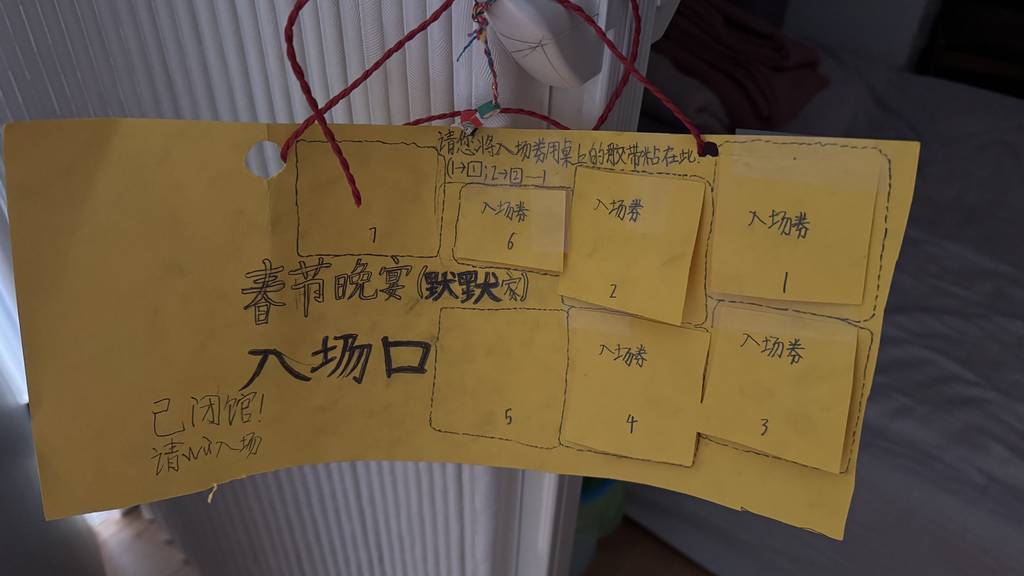 请您将入场券用桌上的胶带粘在此
(1→1;2→2…)
7
入场券
6
入场券
2
入场券
1
春节晚宴(默默家)
入场口
5
入场券
4
入场券
3
已闭馆!
请勿入场